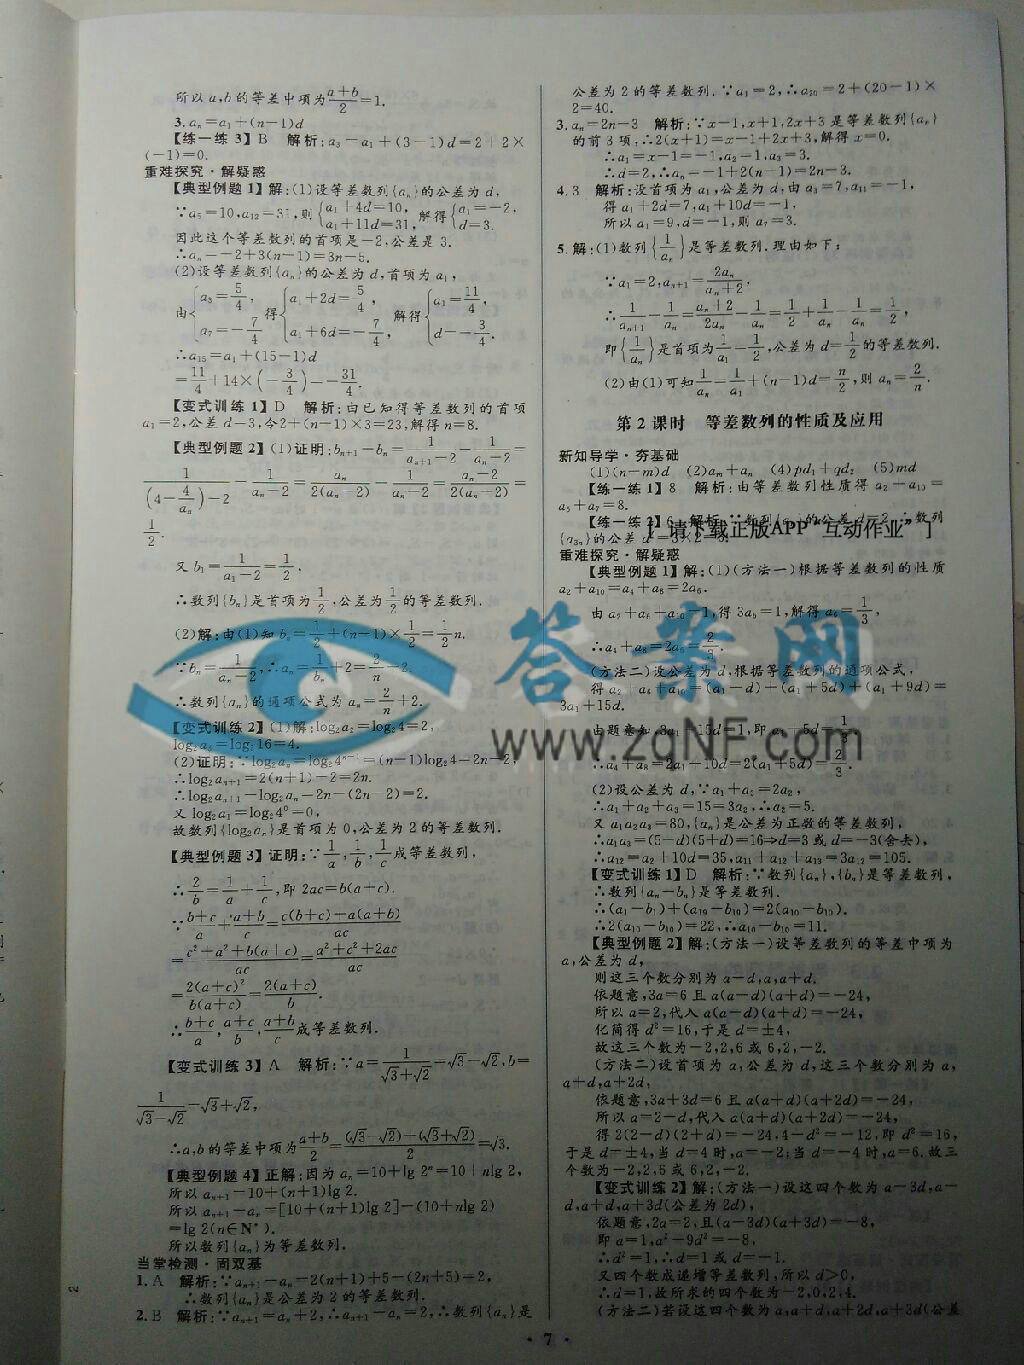 所以a,b的等差中项为(a+b)/2=1.
3. aₙ=a₁+(n-1)d
【练一练3】B 解析:a₃=a₁+(3-1)d=2+2×
(-1)=0.
重难探究·解疑惑
【典型例题1】解:(1)设等差数列{aₙ}的公差为d,
∵a₅=10,a₁₂=31,则{a₁+4d=10, a₁+11d=31, 解得{a₁=-2, d=3.
因此这个等差数列的首项是-2,公差是3.
∴aₙ=-2+3(n-1)=3n-5.
(2)设等差数列{aₙ}的公差为d,首项为a₁,
由{a₃=5/4, a₇=-7/4 得{a₁+2d=5/4, a₁+6d=-7/4, 解得{a₁=11/4, d=-3/4.
∴a₁₅=a₁+(15-1)d
=11/4+14×(-3/4)=-31/4.
【变式训练1】D 解析:由已知得等差数列的首项
a₁=2,公差d=3,令2+(n-1)×3=23,解得n=8.
【典型例题2】(1)证明:bₙ₊₁-bₙ=1/(aₙ₊₁-2)-1/(aₙ-2)=
1/((4-4/aₙ)-2)-1/(aₙ-2)=aₙ/(2(aₙ-2))-1/(aₙ-2)=(aₙ-2)/(2(aₙ-2))=
1/2.
又b₁=1/(a₁-2)=1/2,
∴数列{bₙ}是首项为1/2,公差为1/2的等差数列.
(2)解:由(1)知bₙ=1/2+(n-1)×1/2=1/2n.
∵bₙ=1/(aₙ-2),∴aₙ=1/bₙ+2=2/n+2.
∴数列{aₙ}的通项公式为aₙ=2/n+2.
【变式训练2】(1)解:log₂a₂=log₂4=2,
log₂a₃=log₂16=4.
(2)证明:∵log₂aₙ=log₂4ⁿ⁻¹=(n-1)log₂4=2n-2,
∴log₂aₙ₊₁=2(n+1)-2=2n.
∴log₂aₙ₊₁-log₂aₙ=2n-(2n-2)=2.
又log₂a₁=log₂4⁰=0,
故数列{log₂aₙ}是首项为0,公差为2的等差数列.
【典型例题3】证明:∵1/a,1/b,1/c成等差数列,
∴2/b=1/a+1/c,即2ac=b(a+c).
∵(b+c)/a+(a+b)/c=(c(b+c)+a(a+b))/ac
=(c²+a²+b(a+c))/ac=(a²+c²+2ac)/ac
=2(a+c)²/(b(a+c))=2(a+c)/b.
∴(b+c)/a,(a+c)/b,(a+b)/c成等差数列.
【变式训练3】A 解析:∵a=1/(√3+√2)=√3-√2,b=
1/(√3-√2)=√3+√2,
∴a,b的等差中项为(a+b)/2=((√3-√2)+(√3+√2))/2=√3.
【典型例题4】正解:因为aₙ=10+lg 2ⁿ=10+nlg 2,
所以aₙ₊₁=10+(n+1)lg 2.
所以aₙ₊₁-aₙ=[10+(n+1)lg 2]-(10+nlg 2)
=lg 2(n∈N*).
所以数列{aₙ}为等差数列.
当堂检测·固双基
1. A 解析:∵aₙ₊₁-aₙ=2(n+1)+5-(2n+5)=2,
∴数列{aₙ}是公差为2的等差数列.
2. B 解析:∵aₙ₊₁=aₙ+2,∴aₙ₊₁-aₙ=2,∴数列{aₙ}是
公差为2的等差数列.∵a₁=2,∴a₂₀=2+(20-1)×
2=40.
3. aₙ=2n-3 解析:∵x-1,x+1,2x+3是等差数列{aₙ}
的前3项,∴2(x+1)=x-1+2x+3,解得x=0.
∴a₁=x-1=-1,a₂=1,a₃=3.
∴d=2,∴aₙ=-1+2(n-1)=2n-3.
4. 3 解析:设首项为a₁,公差为d,由a₃=7,a₁₁=-1,
得a₁+2d=7,a₁+10d=-1.
所以a₁=9,d=-1,则a₇=3.
5. 解:(1)数列{1/aₙ}是等差数列.理由如下:
∵a₁=2,aₙ₊₁=2aₙ/(aₙ+2),
∴1/aₙ₊₁-1/aₙ=(aₙ+2)/2aₙ-1/aₙ=1/2+1/aₙ-1/aₙ=1/2,
即{1/aₙ}是首项为1/a₁=1/2,公差为d=1/2的等差数列.
(2)由(1)可知1/aₙ=1/a₁+(n-1)d=n/2,则aₙ=2/n.
第2课时 等差数列的性质及应用
新知导学·夯基础
(1)(n-m)d (2)aₘ+aₙ (4)pd₁+qd₂ (5)md
【练一练1】8 解析:由等差数列性质得a₂+a₁₀=
a₅+a₇=8.
【练一练2】6 解析:∵数列{aₙ}的公差d=2,∴数列
{a₃ₙ}的公差d=3×2=6.
[“请下载正版APP“互动作业”]
重难探究·解疑惑
【典型例题1】解:(1)(方法一)根据等差数列的性质
a₂+a₁₀=a₄+a₈=2a₆.
由a₂+a₆+a₁₀=1,得3a₆=1,解得a₆=1/3,
∴a₄+a₈=2a₆=2/3.
(方法二)设公差为d,根据等差数列的通项公式,
得a₂+a₆+a₁₀=(a₁+d)+(a₁+5d)+(a₁+9d)=
3a₁+15d.
由题意知,3a₁+15d=1,即a₁+5d=1/3.
∴a₄+a₈=2a₁+10d=2(a₁+5d)=2/3.
(2)设公差为d,∵a₁+a₃=2a₂,
∴a₁+a₂+a₃=15=3a₂,∴a₂=5.
又a₁a₂a₃=80,{aₙ}是公差为正数的等差数列,
∴a₁a₃=(5-d)(5+d)=16⇒d=3或d=-3(舍去),
∴a₁₂=a₂+10d=35,a₁₁+a₁₂+a₁₃=3a₁₂=105.
【变式训练1】D 解析:∵数列{aₙ},{bₙ}是等差数列,
∴数列{aₙ-bₙ}是等差数列.
∴(a₁-b₁)+(a₁₉-b₁₉)=2(a₁₀-b₁₀).
∴2(a₁₀-b₁₀)=22,∴a₁₀-b₁₀=11.
【典型例题2】解:(方法一)设等差数列的等差中项为
a,公差为d,
则这三个数分别为a-d,a,a+d.
依题意,3a=6且a(a-d)(a+d)=-24,
所以a=2,代入a(a-d)(a+d)=-24,
化简得d²=16,于是d=±4,
故这三个数为-2,2,6或6,2,-2.
(方法二)设首项为a,公差为d,这三个数分别为a,
a+d,a+2d,
依题意,3a+3d=6且a(a+d)(a+2d)=-24,
所以a=2-d,代入a(a+d)(a+2d)=-24,
得2(2-d)(2+d)=-24,4-d²=-12,即d²=16,
于是d=±4,当d=4时,a=-2;当d=-4时,a=6.故三
个数为-2,2,6或6,2,-2.
【变式训练2】解:(方法一)设这四个数为a-3d,a-
d,a+d,a+3d(公差为2d),
依题意,2a=2,且(a-3d)(a+3d)=-8,
即a=1,a²-9d²=-8,
∴d²=1,∴d=1或d=-1.
又四个数成递增等差数列,所以d>0,
∴d=1,故所求的四个数为-2,0,2,4.
(方法二)若设这四个数为a,a+d,a+2d,a+3d(公差
答案网
www.zqNF.com
· 7 ·